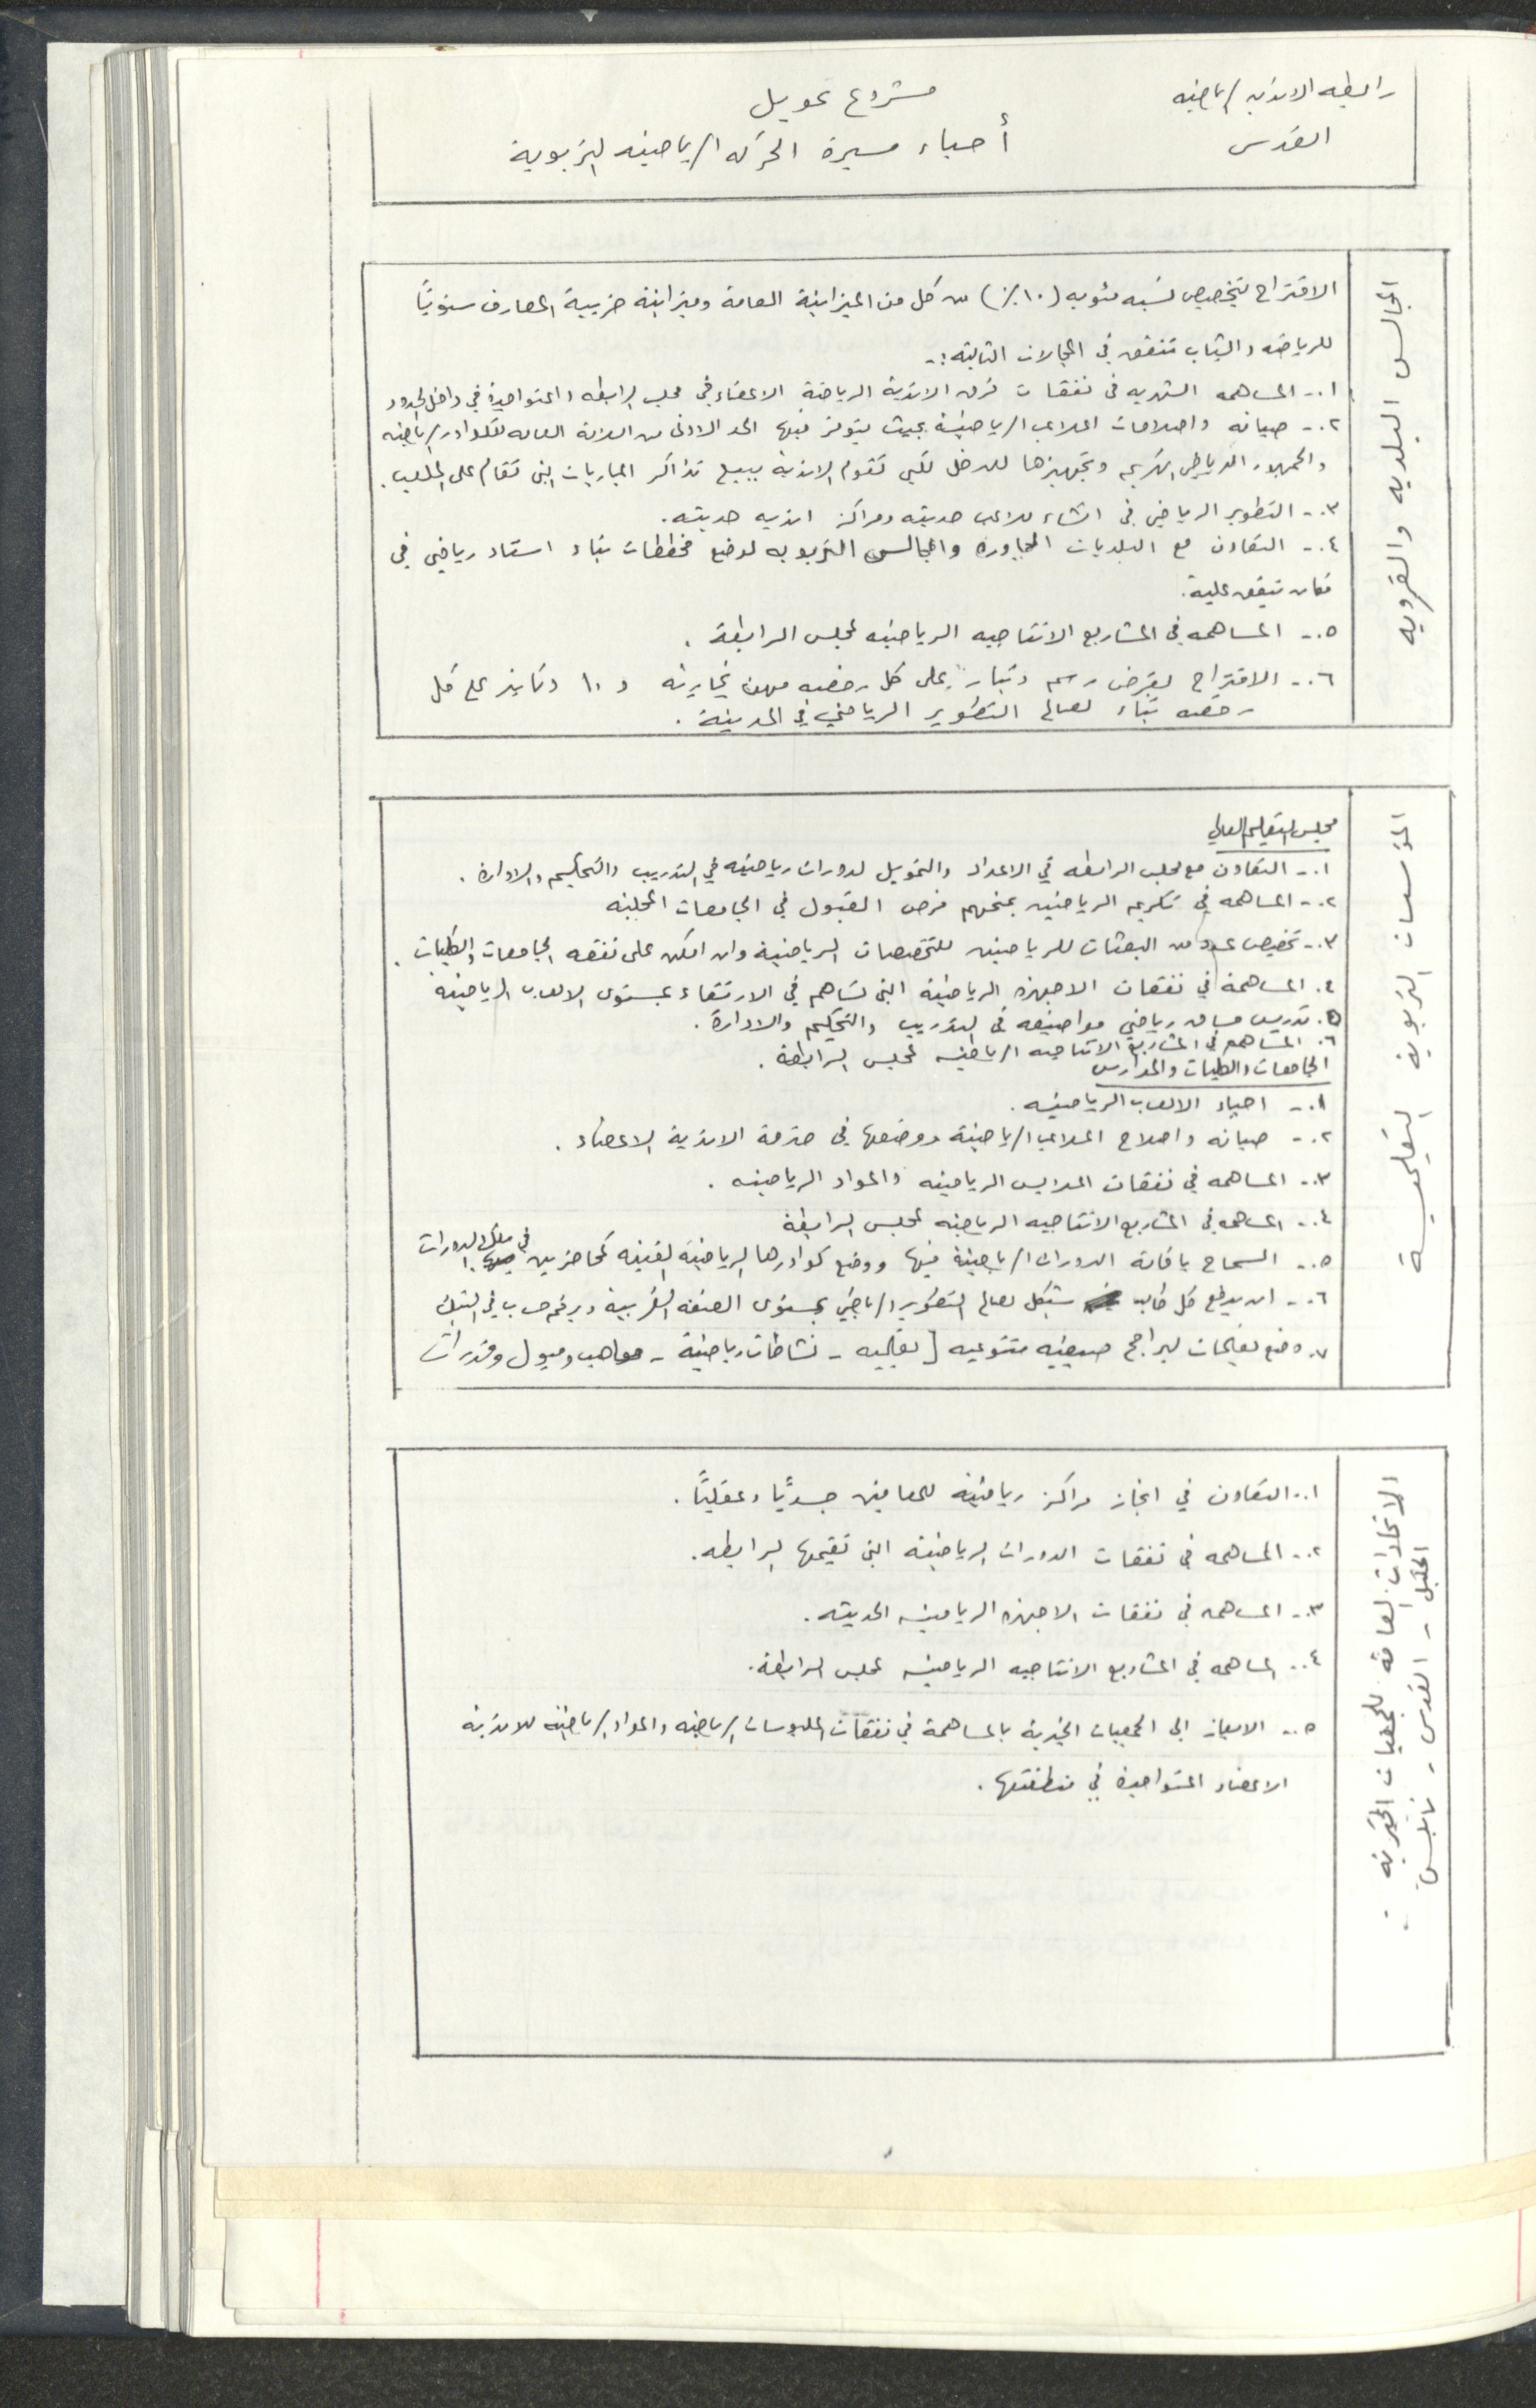 رابطه الاندية الرياضيه
القدس
مشروع تمويل
أحياء مسيرة الحركه الرياضيه التربوية
المجالس البلديه والقرويه
الاقتراح بتخصيص نسبه مئويه (١٠٪) من كل من الميزانية العامة وميزانية ضريبة المعارف سنوياً
للرياضه والشباب تنفق في المجالات التالية :-
١.- المساهمه الشهريه في نفقات فرق الاندية الرياضية الاعضاء في مجلس الرابطه والمتواجدة في داخل الحدود
٢.- صيانه واصلاحات الملاعب الرياضية بحيث يتوفر فيها الحد الادنى من السلامة العامه للكوادر الرياضيه
والجمهور الرياضي الكريم وتجهيزها للدخل لكي تقوم الاندية ببيع تذاكر المباريات التي تقام على الملعب.
٣.- التطوير الرياضي في انشاء ملاعب حديثه ومراكز انديه حديثه.
٤.- التعاون مع البلديات المجاورة والمجالس التربويه لوضع مخططات بناء استاد رياضي في
مكان يتفق عليه.
٥.- المساهمه في المشاريع الانتاجيه الرياضيه لمجلس الرابطة .
٦.- الاقتراح بفرض رسم دينار على كل رخصه مهن تجاريه و ١٠ دنانير على كل
رخصه بناء لصالح التطوير الرياضي في المدينة .
المؤسسات التربوية التعليمية
مجلس التعليم العالي
١.- التعاون مع مجلس الرابطه في الاعداد والتمويل لدورات رياضيه في التدريب والتحكيم والادارة .
٢.- المساهمه في تكريم الرياضيين بمنحهم فرص القبول في الجامعات المحلية
٣.- تخصيص عدد من البعثات للرياضيين للتخصصات الرياضية وان امكن على نفقه الجامعات والكليات .
٤. المساهمة في نفقات الاجهزه الرياضية التي تساهم في الارتقاء بمستوى الالعاب الرياضية
٥. تدريس مساق رياضي مواضيعه في التدريب والتحكيم والادارة .
٦. المساهمه في المشاريع الانتاجيه الرياضيه لمجلس الرابطة .
الجامعات والكليات والمدارس
١.- احياء الالعاب الرياضيه .
٢.- صيانه واصلاح الملاعب الرياضية ووضعها في خدمة الاندية الاعضاء .
٣.- المساهمه في نفقات الملابس الرياضيه والمواد الرياضيه .
٤.- المساهمه في المشاريع الانتاجيه الرياضيه لمجلس الرابطة
٥.- السماح باقامة الدورات الرياضية فيها ووضع كوادرها الرياضية الفنيه كمحاضرين في مثل الدورات
٦.- ان يدفع كل طالب شيكل لصالح التطوير الرياضي بمستوى الضفه الغربية وبرقم حساب في البنك
٧. وضع تعليمات لبرامج صيفيه متنوعيه [ تعليميه - نشاطات رياضية - مواهب وميول وقدرات
الاتحادات العامة للجمعيات الخيرية
الخليل - القدس - نابلس
١.- التعاون في انجاز مراكز رياضية للمعاقين جسديًا وعقليًا .
٢.- المساهمه في نفقات الدورات الرياضية التي تقيمها الرابطه.
٣.- المساهمه في نفقات الاجهزه الرياضيه الحديثه .
٤.- المساهمه في المشاريع الانتاجيه الرياضيه لمجلس الرابطة.
٥.- الايعاز الى الجمعيات الخيرية بالمساهمة في نفقات الملبوسات الرياضيه والمواد الرياضيه للاندية
الاعضاء المتواجدة في منطقتها .